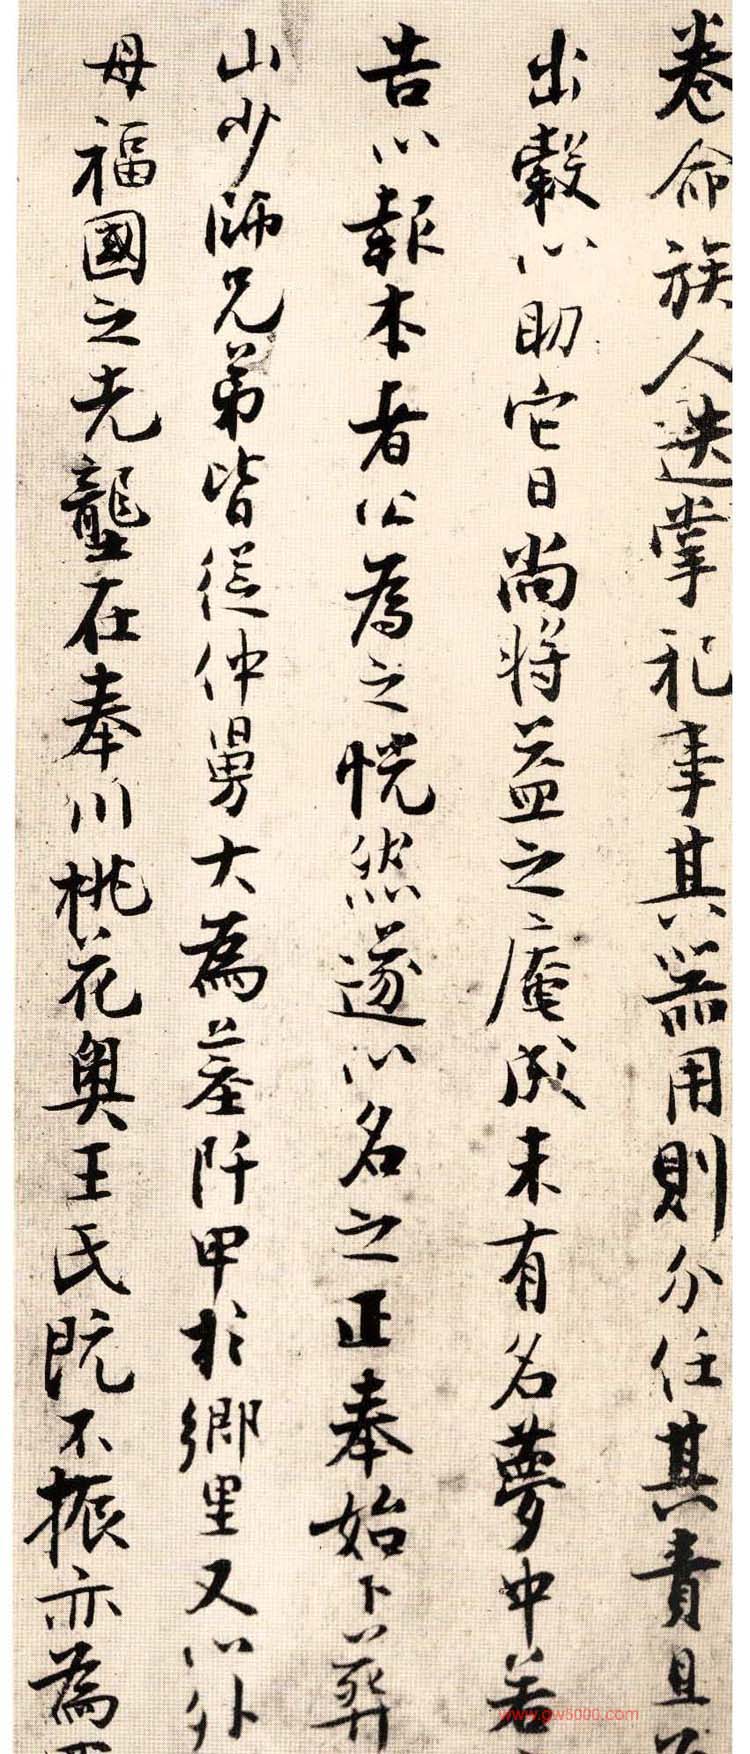 卷命族人迭掌祀事其器用則分任其責且
出穀以助它日尚將益之庵成未有名夢中若
告以報本者公為之恍然遂以名之正奉始卜葬
山少師兄弟皆從仲舅大為墓阡甲於鄉里又以外
母福國之先壟在奉川桃花奧王氏既不振亦為
www.gw5000.com